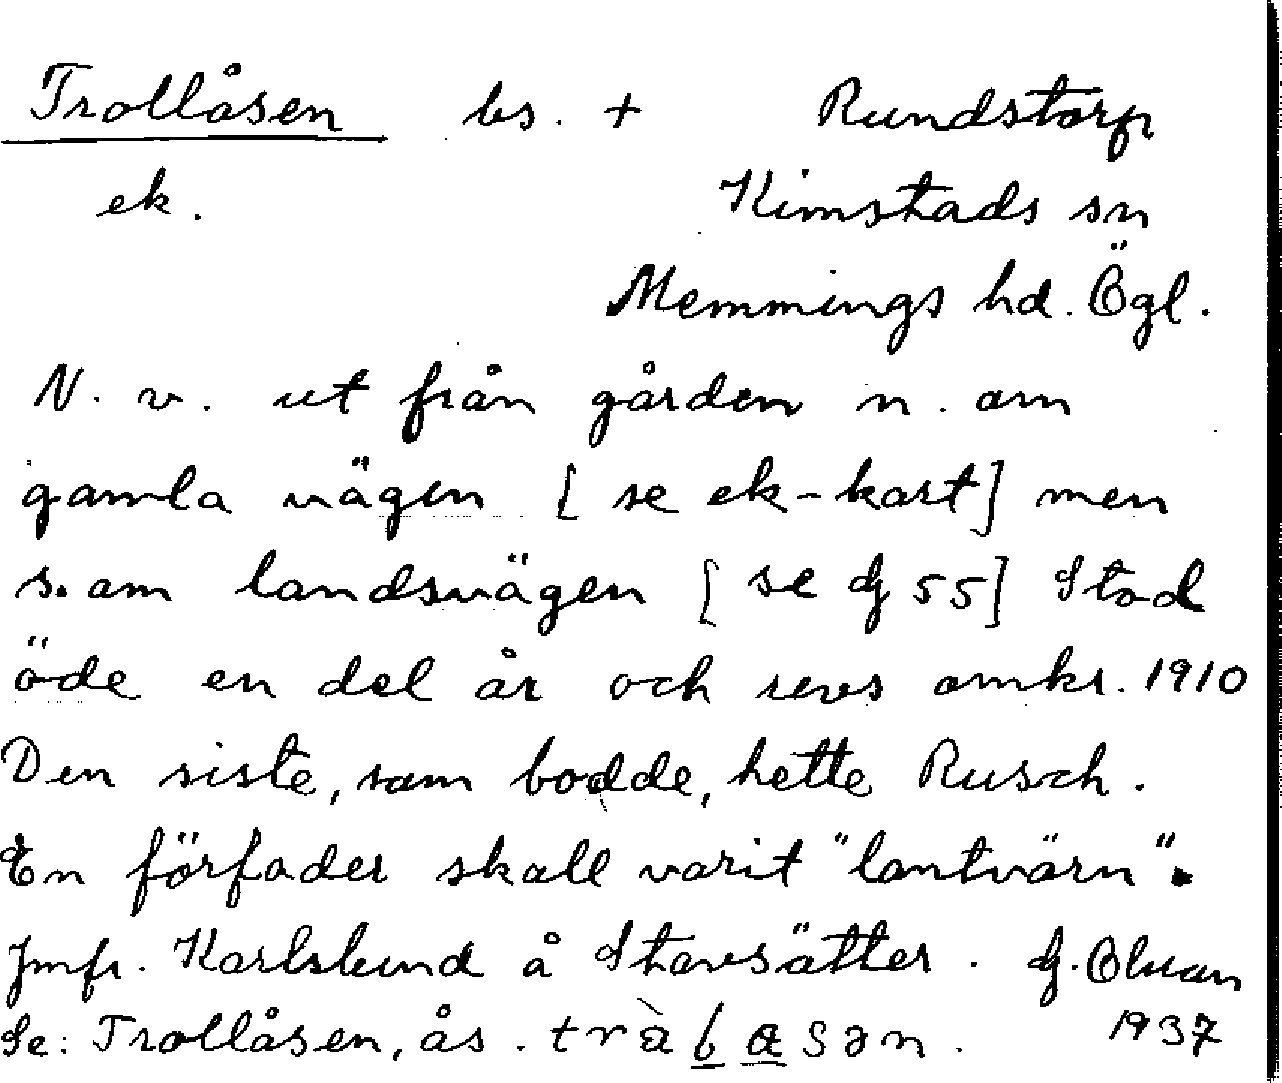 Trollåsen bs. + Rundstorp
ek. Kimstads sn
Memmings hd. Ögl.
N. v. ut från gården n. om
gamla vägen [se ek-kart] men
s. om landsvägen [se dj 55] Stod
öde en del år och revs omkr. 1910
Den siste, som bodde, hette Rusch.
En förfader skall varit "lantvärn".
Jmfr. Karlslund å Stavsätter. G. Olson
Se: Trollåsen, ås. 1937